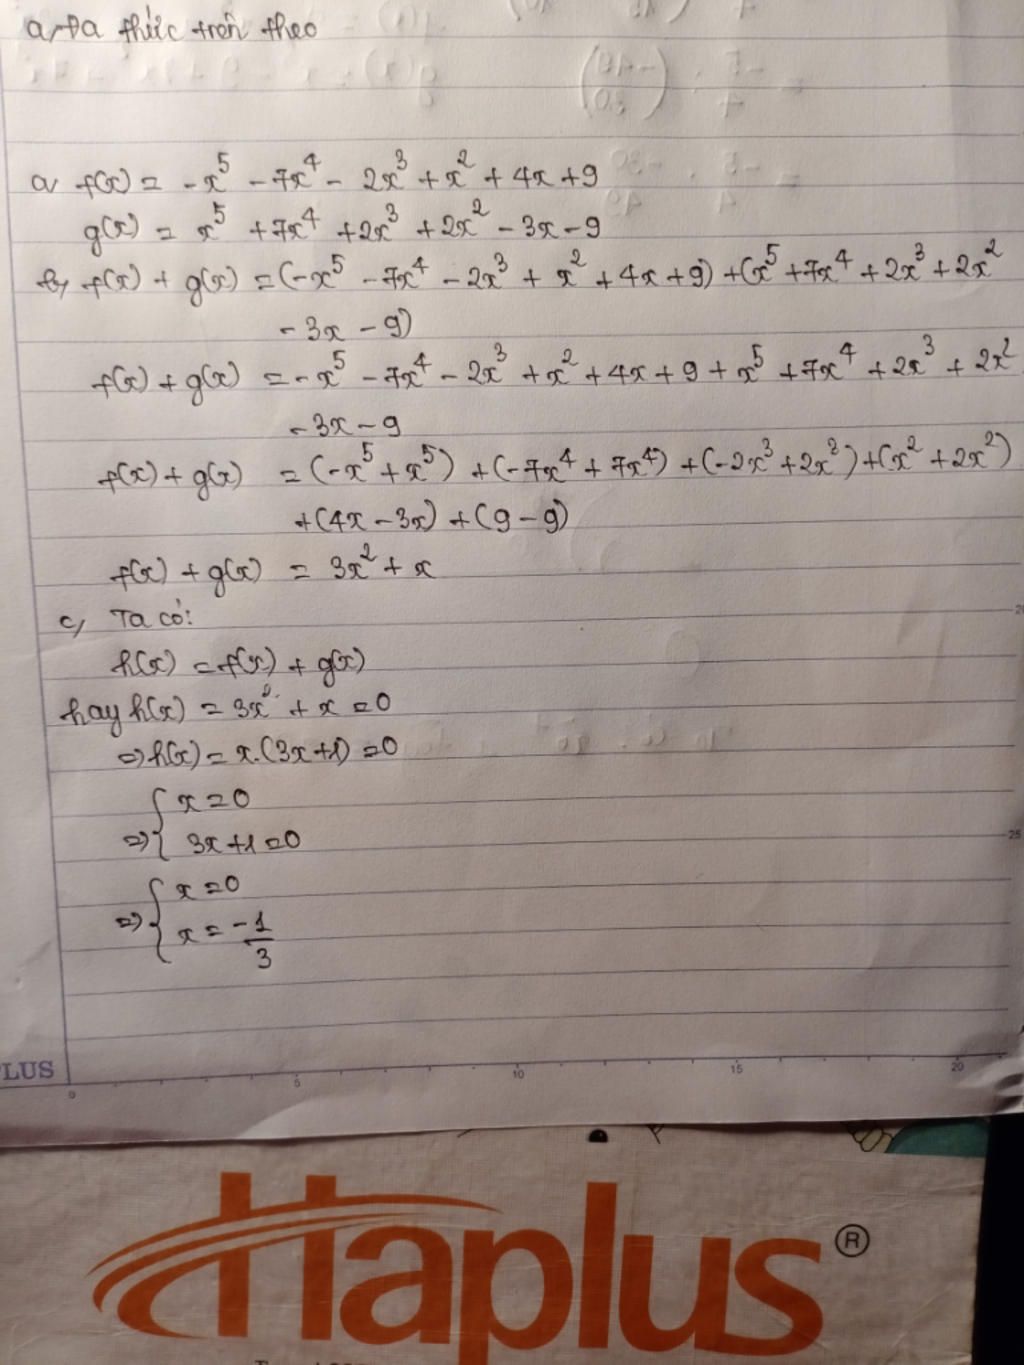 a, Đa thức trên theo
a, f(x) = -x⁵ - 7x⁴ - 2x³ + x² + 4x + 9
g(x) = x⁵ + 7x⁴ + 2x³ + 2x² - 3x - 9
b, f(x) + g(x) = (-x⁵ - 7x⁴ - 2x³ + x² + 4x + 9) + (x⁵ + 7x⁴ + 2x³ + 2x²
- 3x - 9)
f(x) + g(x) = -x⁵ - 7x⁴ - 2x³ + x² + 4x + 9 + x⁵ + 7x⁴ + 2x³ + 2x²
- 3x - 9
f(x) + g(x) = (-x⁵ + x⁵) + (-7x⁴ + 7x⁴) + (-2x³ + 2x³) + (x² + 2x²)
+ (4x - 3x) + (9 - 9)
f(x) + g(x) = 3x² + x
c, Ta có:
h(x) = f(x) + g(x)
hay h(x) = 3x² + x = 0
=> h(x) = x.(3x + 1) = 0
=> { x = 0
3x + 1 = 0
=> { x = 0
x = -1/3
PLUS
0 5 10 15 20
25
Haplus ®